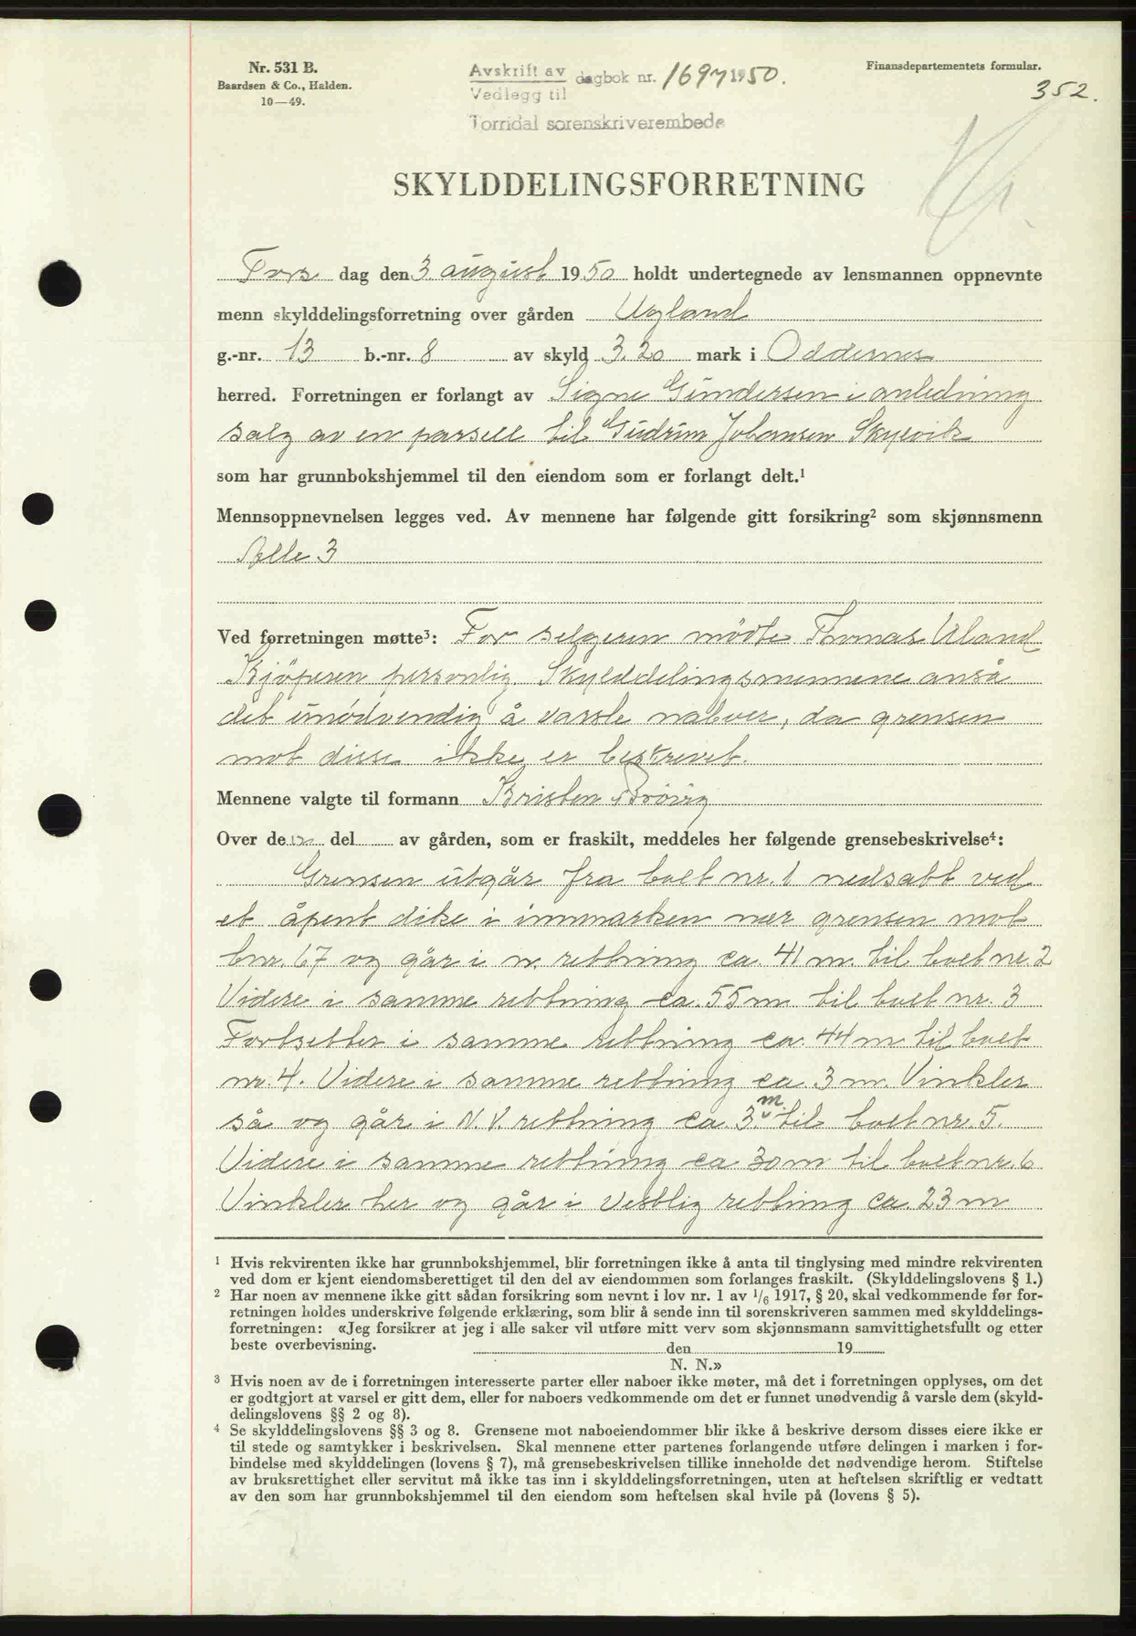 Nr. 531 B.
Baardsen & Co., Halden.
10—49.
Avskrift av
Vedlegg til
dagbok nr. 1697 1950.
Torridal sorenskriverembede
Finansdepartementets formular.
352.
SKYLDDELINGSFORRETNING
Tors dag den 3 august 1950 holdt undertegnede av lensmannen oppnevnte
menn skylddelingsforretning over gården Ugland
g.-nr. 13 b.-nr. 8 av skyld 3.20 mark i Oddernes
herred. Forretningen er forlangt av Signe Gundersen i anledning
salg av en parsell til Gudrun Johansen Skyevik
som har grunnbokshjemmel til den eiendom som er forlangt delt.¹
Mennsoppnevnelsen legges ved. Av mennene har følgende gitt forsikring² som skjønnsmenn
Alle 3
Ved forretningen møtte³: For selgeren mödte Thomas Uland
Kjöperen personlig. Skylddelingsmennene anså
det unödvendig å varsle naboer, da grensen
mot disse ikke er beskrevet.
Mennene valgte til formann Kristen Brövig
Over den del av gården, som er fraskilt, meddeles her følgende grensebeskrivelse⁴:
Grensen utgår fra bolt nr. 1 nedsatt ved
et åpent dike i innmarken nær grensen mot
bnr. 67 og går i n. rettning ca. 41 m. til bolt nr. 2
Videre i samme rettning ca. 55 m til bolt nr. 3
Fortsetter i samme rettning ca. 44 m til bolt
nr. 4. Videre i samme rettning ca 3 m. Vinkler
så og går i N.V. rettning ca 3 m. til bolt nr. 5.
Videre i samme rettning ca 30 m til bolt nr. 6
Vinkler her og går i vestlig rettning ca. 23 m
¹ Hvis rekvirenten ikke har grunnbokshjemmel, blir forretningen ikke å anta til tinglysing med mindre rekvirenten
ved dom er kjent eiendomsberettiget til den del av eiendommen som forlanges fraskilt. (Skylddelingslovens § 1.)
² Har noen av mennene ikke gitt sådan forsikring som nevnt i lov nr. 1 av 1/6 1917, § 20, skal vedkommende før for-
retningen holdes underskrive følgende erklæring, som blir å sende inn til sorenskriveren sammen med skylddelings-
forretningen: «Jeg forsikrer at jeg i alle saker vil utføre mitt verv som skjønnsmann samvittighetsfullt og etter
beste overbevisning. den 19
N. N.»
³ Hvis noen av de i forretningen interesserte parter eller naboer ikke møter, må det i forretningen opplyses, om det
er godtgjort at varsel er gitt dem, eller for naboers vedkommende om det er funnet unødvendig å varsle dem (skyld-
delingslovens §§ 2 og 8).
⁴ Se skylddelingslovens §§ 3 og 8. Grensene mot naboeiendommer blir ikke å beskrive dersom disses eiere ikke er
til stede og samtykker i beskrivelsen. Skal mennene etter partenes forlangende utføre delingen i marken i for-
bindelse med skylddelingen (lovens § 7), må grensebeskrivelsen tillike inneholde det nødvendige herom. Stiftelse
av bruksrettighet eller servitut må ikke tas inn i skylddelingsforretningen, uten at heftelsen skriftlig er vedtatt
av den som har grunnbokshjemmel til den eiendom som heftelsen skal hvile på (lovens § 5).